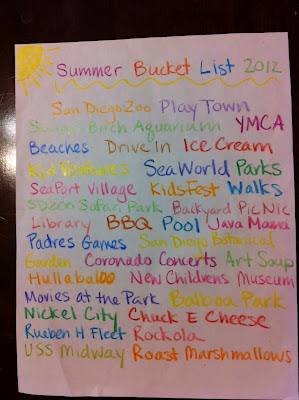 Summer Bucket List 2012
San Diego Zoo Play Town
Birch Aquarium YMCA
Beaches Drive In Ice Cream
Kid Ventures SeaWorld Parks
SeaPort Village KidsFest Walks
SD Zoo Safari Park Backyard PicNic
Library BBQ Pool Java Mama
Padres Games San Diego Botanical
Garden Coronado Concerts Art Soup
Hullabaloo New Childrens Museum
Movies at the Park Balboa Park
Nickel City Chuck E Cheese
Rueben H Fleet Rockola
USS Midway Roast Marshmallows